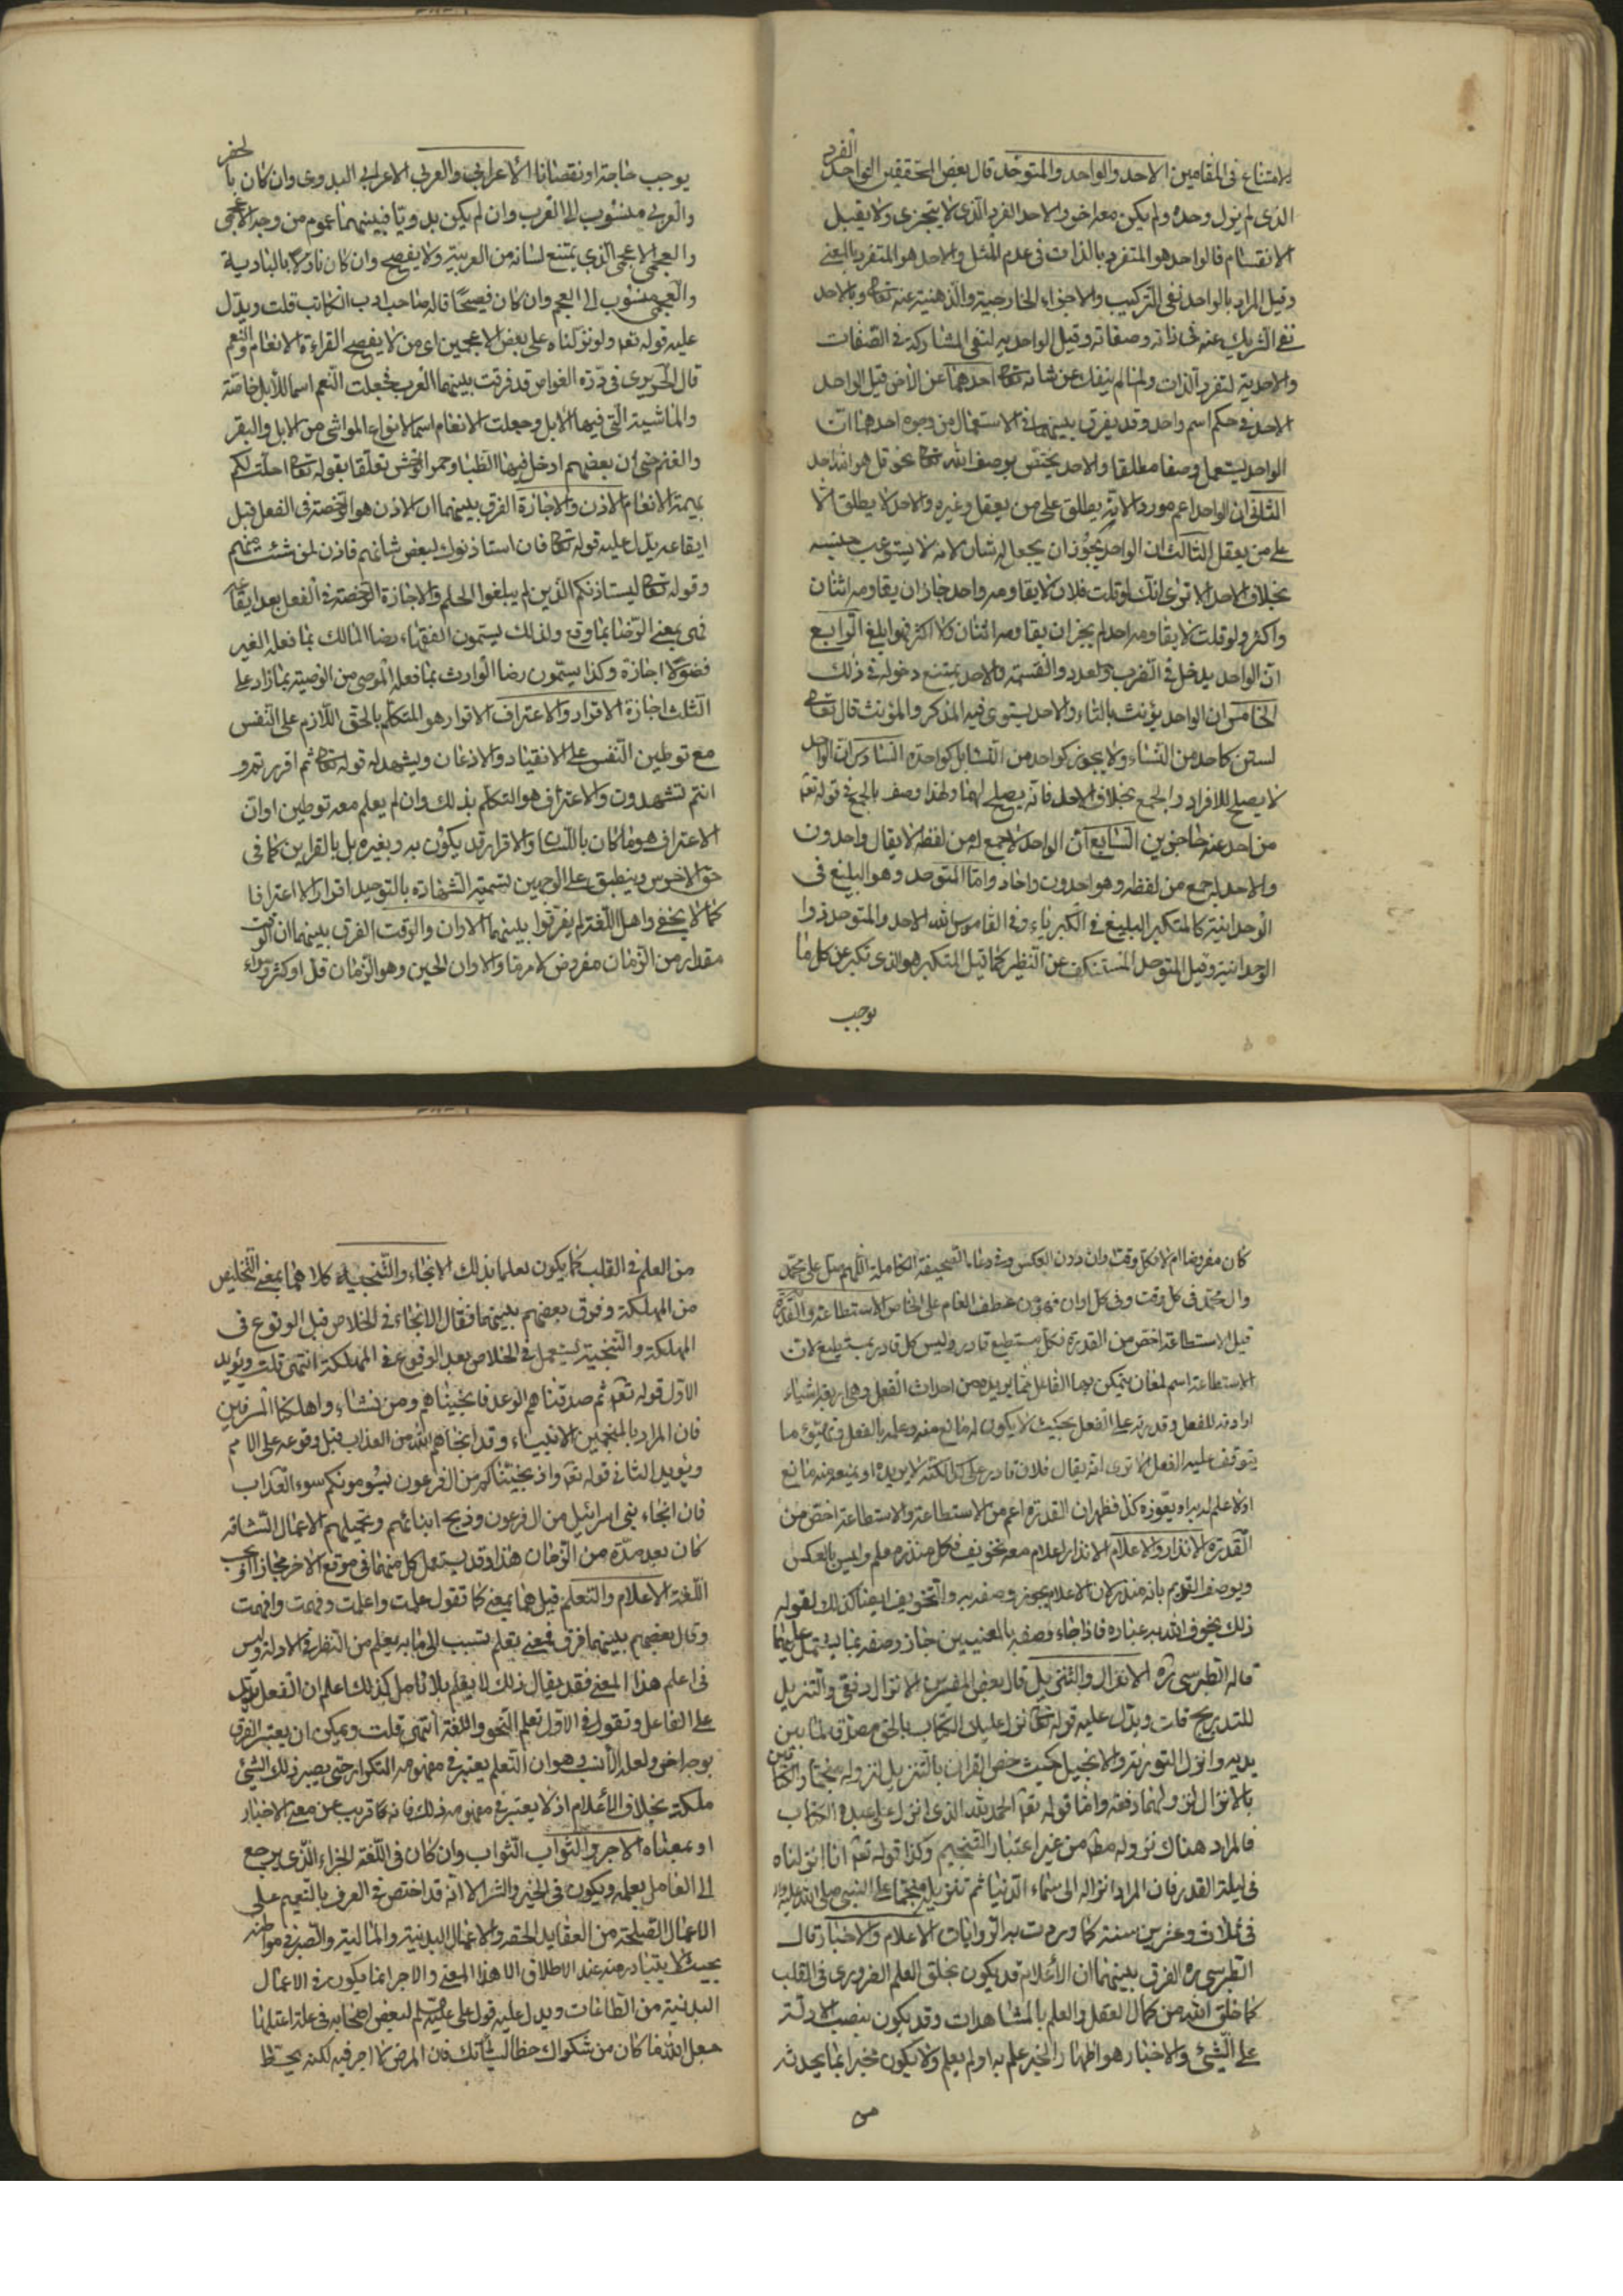 الفرد
للامتناع فى المقامين الاحد والواحد والمتوحد قال بعض المحققين الواحد
الذى لم يزل وحده ولم يكن معه اخر والاحد الفرد الذى لا يتجزى ولا يقبل
الانقسام فالواحد هو المتفرد بالذات فى عدم المثل والاحد هو المتفرد بالمعنى
وقيل المراد بالواحد نفى التركيب والاجزاء الخارجية والذهنية عنه تعالى وبالاحد
نفى الشريك عنه فى ذاته وصفاته وقيل الواحديه لنفى المشاركة فى الصفات
والاحدية لتفرد الذات ولما لم ينفك عن شانه تعالى احدهما عن الاخر قيل الواحد
الاحد فى حكم اسم واحد وقد يفرق بينهما فى الاستعمال من وجوه احدها ان
الواحد يستعمل وصفا مطلقا والاحد يختص بوصف الله تعالى نحو قل هو الله احد
الثانى ان الواحد اعم موردا لانه يطلق على من يعقل وغيره والاحد لا يطلق الا
على من يعقل الثالث ان الواحد يجوز ان يجعل له ثان لانه لا يستوعب جنسه
بخلاف الاحد الا ترى انك لو قلت فلان لا يقاومه واحد جاز ان يقاومه اثنان
واكثر ولو قلت لا يقاومه احد لم يجز ان يقاومه اثنان ولا اكثر فهو ابلغ الرابع
ان الواحد يدخل فى الضرب والعدد والقسمة والاحد يمتنع دخوله فى ذلك
الخامس ان الواحد يؤنث بالتاء والاحد يستوى فيه المذكر والمؤنث قال تعالى
لستن كاحد من النساء ولا يجوز كواحد من النساء بل كواحدة السادس ان الواحد
لا يصلح للافراد والجمع بخلاف الاحد فانه يصلح لهما ولهذا وصف بالجمع فى قوله تعالى
من احد عنه حاجزين السابع ان الواحد لا جمع له من لفظه لا يقال واحدون
والاحد له جمع من لفظه وهو احدون واحاد واما المتوحد وهو البليغ فى
الوحدانية كالمتكبر البليغ فى الكبرياء وفى القاموس الله الاحد والمتوحد ذو
الوحدانية وقيل المتوحد المستنكف عن النظير كما قيل المتكبر هو الذى تكبر عن كل ما
يوجب
يوجب حاجة او نقصانا الاعرابى والعربى الاعرابى البدوى وان كان بالحضر
والعربى منسوب الى العرب وان لم يكن بدويا فبينهما عموم من وجه الاعجمى
والعجمى الاعجمى الذى يمتنع لسانه من العربية ولا يفصح وان كان نازلا بالبادية
والعجمى منسوب الى العجم وان كان فصيحا قاله صاحب ادب الكاتب قلت ويدل
عليه قوله تعالى ولو نزلناه على بعض الاعجمين اى من لا يفصح القراءة الانعام والنعم
قال الحريرى فى درة الغواص قد فرقت بينهما العرب فجعلت النعم اسما للابل خاصة
والماشية التى فيها الابل وجعلت الانعام اسما لانواع المواشى من الابل والبقر
والغنم حتى ان بعضهم ادخل فيها الظباء وحمر الوحش تعلقا بقوله تعالى احلت لكم
بهيمة الانعام الاذن والاجازة الفرق بينهما ان الاذن هو الرخصة فى الفعل قبل
ايقاعه يدل عليه قوله تعالى فان استاذنوك لبعض شانهم فاذن لمن شئت منهم
وقوله تعالى ليستاذنكم الذين لم يبلغوا الحلم والاجازة الرخصة فى الفعل بعد ايقاعه
فهى بمعنى الرضا بما وقع ولذلك يسمون الفقهاء رضا المالك بما فعله الغير
فضولا اجازة وكذا يسمون رضا الوارث بما فعله الموصى من الوصية بما زاد على
الثلث اجازة الاقرار والاعتراف الاقرار هو المتكلم بالحق اللازم على النفس
مع توطين النفس على الانقياد والاذعان ويشهد له قوله تعالى ثم اقررتم و
انتم تشهدون والاعتراف هو التكلم بذلك وان لم يعلم معه توطين او ان
الاعتراف هو ما كان باللسان والاقرار قد يكون به وبغيره بل بالقراين كما فى
حق الاخرس وينطبق على الوجهين تسمية الشهادة بالتوحيد اقرارا لا اعترافا
كما لا يخفى واهل اللغة لم يفرقوا بينهما الاوان والوقت الفرق بينهما ان الوقت
مقدار من الزمان مفروض لامر ما والاوان الحين وهو الزمان قل او كثر وسواء
كان مفروضا ام لا فكل وقت اوان دون العكس وفى دعاء الصحيفة الكاملة اللهم صل على محمد
وال محمد فى كل وقت وفى كل اوان فهو من عطف العام على الخاص الاستطاعة والقدرة
قيل الاستطاعة اخص من القدرة فكل مستطيع قادر وليس كل قادر بمستطيع لان
الاستطاعة اسم لمعان يتمكن بها الفاعل مما يريده من احداث الفعل وهى اربعة اشياء
ارادته للفعل وقدرته على الفعل بحيث لا يكون له مانع منه وعلمه بالفعل وتهيؤ ما
يتوقف عليه الفعل الا ترى انه يقال فلان قادر على كذا لكنه لا يريده او يمنعه منه مانع
او لا علم له به او يعوزه كذا فظهر ان القدرة اعم من الاستطاعة والاستطاعة اخص من
القدرة الانذار والاعلام الانذار اعلام معه تخويف فكل منذر معلم وليس بالعكس
ويوصف القديم بانه منذر لان الاعلام يجوز وصفه به والتخويف ايضا كذلك لقوله
ذلك يخوف الله به عباده فاذا جاء وصفه بالمعنيين جاز وصفه بما يشتمل عليهما
قاله الطبرسى ره الانزال والتنزيل قال بعض المفسرين الانزال دفعى والتنزيل
للتدريج قلت ويدل عليه قوله تعالى نزل عليك الكتاب بالحق مصدقا لما بين
يديه وانزل التورية والانجيل حيث خص القران بالتنزيل لنزوله منجما والكتابين
بالانزال لنزولهما دفعة واما قوله تعالى الحمد لله الذى انزل على عبده الكتاب
فالمراد هناك نزوله مطلقا من غير اعتبار التنجيم وكذا قوله تعالى انا انزلناه
فى ليلة القدر فان المراد انزاله الى سماء الدنيا ثم تنزيله منجما على النبى صلى الله عليه واله
فى ثلاث وعشرين سنة كما وردت به الروايات الاعلام والاخبار قال
الطبرسى ره الفرق بينهما ان الاعلام قد يكون بخلق العلم الضرورى فى القلب
كما خلق الله من كمال العقل والعلم بالمشاهدات وقد يكون بنصب الادلة
على الشئ والاخبار هو اظهار الخبر علم به او لم يعلم ولا يكون مخبرا بما يحدثه
من
من العلم فى القلب كما يكون معلما بذلك الانجاء والتنجية كلاهما بمعنى التخليص
من المهلكة وفرق بعضهم بينهما فقال الانجاء فى الخلاص قبل الوقوع فى
المهلكة والتنجية يستعمل فى الخلاص بعد الوقوع فى المهلكة انتهى قلت ويؤيد
الاول قوله تعالى ثم صدقناهم الوعد فانجيناهم ومن نشاء واهلكنا المسرفين
فان المراد بالمنجين الانبياء وقد انجاهم الله من العذاب قبل وقوعه على الامم
ويؤيد الثانى قوله تعالى واذ نجيناكم من ال فرعون يسومونكم سوء العذاب
فان انجاء بنى اسرائيل من ال فرعون وذبح ابنائهم وتحميلهم الاعمال الشاقة
كان بعد مدة من الزمان هذا وقد يستعمل كل منهما فى موقع الاخر مجازا او بحسب
اللغة الاعلام والتعلم قيل هما بمعنى كما تقول علمت واعلمت وفهمت وافهمت
وقال بعضهم بينهما فرق فمعنى تعلم تسبب الى ما به يعلم من النظر فى الادلة وليس
فى اعلم هذا المعنى فقد يقال ذلك لا يعلم بلا تامل كذلك اعلم ان الفعل يدل
على الفاعل وتقول فى الاول تعلم النحو واللغة انتهى قلت ويمكن ان يعتبر الفرق
بوجه اخر ولعله الانسب وهو ان التعلم يعتبر فى مفهومه التكرار حتى يصير ذلك الشئ
ملكة بخلاف الاعلام اذ لا يعتبر فى مفهومه ذلك فانه قريب من معنى الاخبار
او بمعناه الاجر والثواب الثواب وان كان فى اللغة الجزاء الذى يرجع
الى العامل بعمله ويكون فى الخير والشر الا انه قد اختص فى العرف بالنعيم على
الاعمال الصالحة من العقايد الحقة والاعمال البدنية والمالية والصبر فى مواطنه
بحيث لا يتبادر منه عند الاطلاق الا هذا المعنى والاجر انما يكون فى الاعمال
البدنية من الطاعات ويدل عليه قول على عليه السلم لبعض اصحابه فى علة اعتلها
جعل الله ما كان من شكواك حطا لسيأتك فان المرض لا اجر فيه لكنه يحط